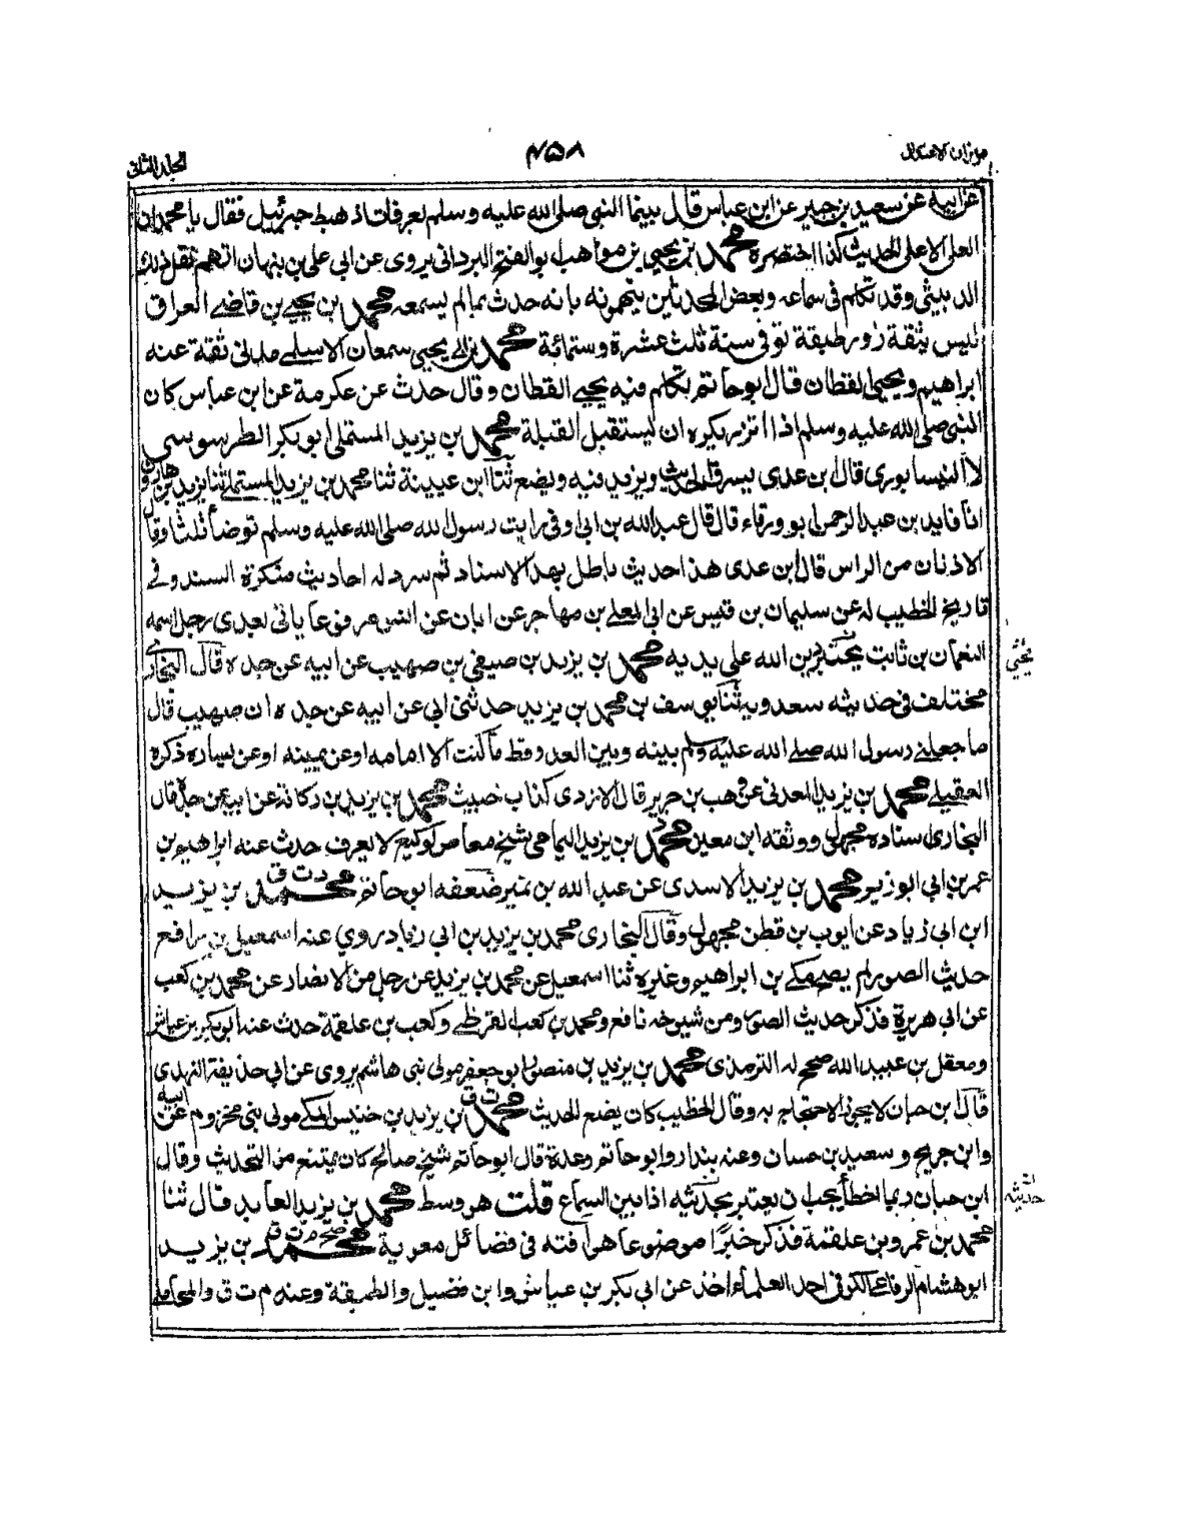 ميزان الاعتدال
٤٥٨
المجلد الثانى
عن ابيه عن سعيد بن جبير عن ابن عباس قال بينما النبي صلى الله عليه وسلم بعرفات اذ هبط جبرئيل فقال يا محمد ان
العلى الاعلى الحديث كذا اختصره محمد بن يحيى بن مواهب ابو الفتح البردانى يروى عن ابى على بن نبهان اتهم نقل ذلك
الدبيثى وقد تكلم فى سماعه وبعض المحدثين يتهمونه بانه حدث بمالم يسمعه محمد بن يحيى بن قاضى العراق
ليس بثقة زور طبقة توفى سنة ثلث عشرة وستمائة محمد بن ابى يحيى سمعان الاسلمى مدنى ثقة عنه
ابراهيم ويحيى القطان قال ابو حاتم تكلم فيه يحيى القطان وقال حدث عن عكرمة عن ابن عباس كان
النبى صلى الله عليه وسلم اذا اتزر يكره ان يستقبل القبلة محمد بن يزيد المستملى ابو بكر الطرسوسى
لا النيسابورى قال ابن عدى يسرق الحديث ويزيد فيه ويضع ثنا ابن عيينة ثنا محمد بن يزيد المستملى ثنا يزيد بن هارون
انا فايد بن عبد الرحمن ابو ورقاء قال قال عبد الله بن ابى اوفى رايت رسول الله صلى الله عليه وسلم توضأ ثلثا وقال
الاذنان من الراس قال ابن عدى هذا حديث باطل بهذا الاسناد ثم سرد له احاديث منكرة السند وفى
تاريخ الخطيب له عن سليمان بن قيس عن ابى المعلى بن مهاجر عن ابان عن انس مرفوعا ياتى بعدى رجل اسمه
النعمان بن ثابت يحيى دين الله على يديه محمد بن يزيد بن صيفى بن صهيب عن ابيه عن جده قال البخارى
يحيى
مختلف فى حديثه سعدويه ثنا يوسف بن محمد بن يزيد حدثنى ابى عن ابيه عن جده ان صهيب قال
ما جعلنى رسول الله صلى الله عليه وسلم بينه وبين العدو قط ما كنت الا امامه او عن يمينه او عن يساره ذكره
العقيلى محمد بن يزيد المعدنى عن وهب بن جرير قال الازدى كذاب خبيث محمد بن يزيد بن ركانة عن ابيه عن جده قال
البخارى اسناده مجهول ووثقه ابن معين محمد بن يزيد اليمامى شيخ معاصر لوكيع لا يعرف حدث عنه ابراهيم بن
عمر بن ابى الوزير محمد بن يزيد الاسدى عن عبد الله بن نمير ضعفه ابو حاتم محمد د ت ق بن يزيد
ابن ابى زياد عن ايوب بن قطن مجهول وقال البخارى محمد بن يزيد بن ابى زياد روى عنه اسمعيل بن رافع
حديث الصور لم يصح مكى بن ابراهيم وغيره ثنا اسمعيل عن محمد بن يزيد عن رجل من الانصار عن محمد بن كعب
عن ابى هريرة فذكر حديث الصور ومن شيوخه نافع ومحمد بن كعب القرظى وكعب بن علقمة حدث عنه ابو بكر بن عياش
ومعقل بن عبيد الله صحح له الترمذى محمد بن يزيد بن منصور ابو جعفر مولى بنى هاشم يروى عن ابى حذيفة النهدى
قال ابن حبان لا يجوز الاحتجاج به وقال الخطيب كان يضع الحديث محمد ت ق بن يزيد بن خنيس المكى مولى بنى مخزوم عن ابيه
وابن جريج وسعيد بن حسان وعنه بندار وابو حاتم وعدة قال ابو حاتم شيخ صالح كان يمتنع من التحديث وقال
ابن حبان ربما اخطأ يجب ان يعتبر بحديثه اذا بين السماع قلت هو وسط محمد بن يزيد العابد قال ثنا
حديثه
محمد بن عمرو بن علقمة فذكر خبرًا موضوعا هو افته فى فضائل معوية محمد صح م ت ق بن يزيد
ابو هشام الرفاعى الكوفى احد العلماء اخذ عن ابى بكر بن عياش وابن فضيل والطبقة وعنه م ت ق والمحاملى